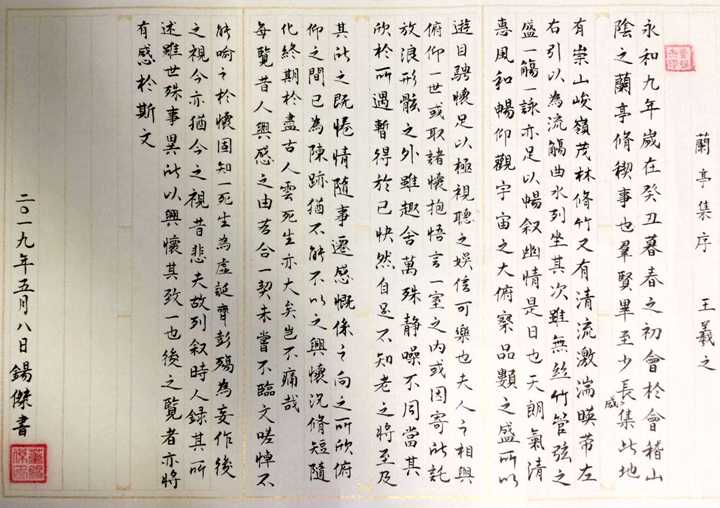 蘭亭集序 王羲之
永和九年歲在癸丑暮春之初會於會稽山
陰之蘭亭脩稧事也羣賢畢至少長咸集此地
有崇山峻嶺茂林脩竹又有清流激湍暎帶左
右引以為流觴曲水列坐其次雖無丝竹管弦之
盛一觴一詠亦足以暢叙幽情是日也天朗氣清
惠風和暢仰觀宇宙之大俯察品類之盛所以
遊目騁懷足以極視聽之娛信可樂也夫人之相與
俯仰一世或取諸懷抱悟言一室之内或因寄所託
放浪形骸之外雖趣舍萬殊静噪不同當其
欣於所遇暫得於己快然自足不知老之將至及
其所之既惓情隨事遷感慨係之向之所欣俯
仰之間已為陳跡猶不能不以之興懷況脩短隨
化終期於盡古人雲死生亦大矣豈不痛哉
每覽昔人興感之由若合一契未嘗不臨文嗟悼不
能喻之於懷固知一死生為虛誕齊彭殤為妄作後
之視今亦猶今之視昔悲夫故列叙時人録其所
述雖世殊事異所以興懷其致一也後之覽者亦將
有感於斯文
二〇一九年五月八日錫傑書